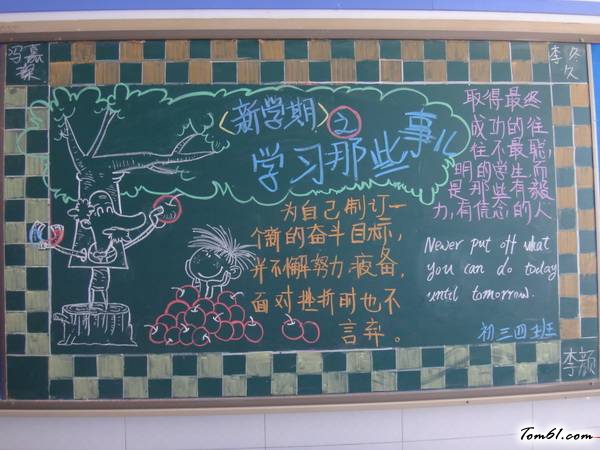 冯嘉
李
〈新学期〉之
学习那些事儿
取得最终
成功的往
往不最聪,
明的学生,而
是那些有毅
力,有信念的人
为自己制订一
个的奋斗目标,
并不懈努力.疲备,
面对挫折时也不
言弃。
Never put off what
you can do today
until tomorrow.
初三四班
李颜
Tom61.com